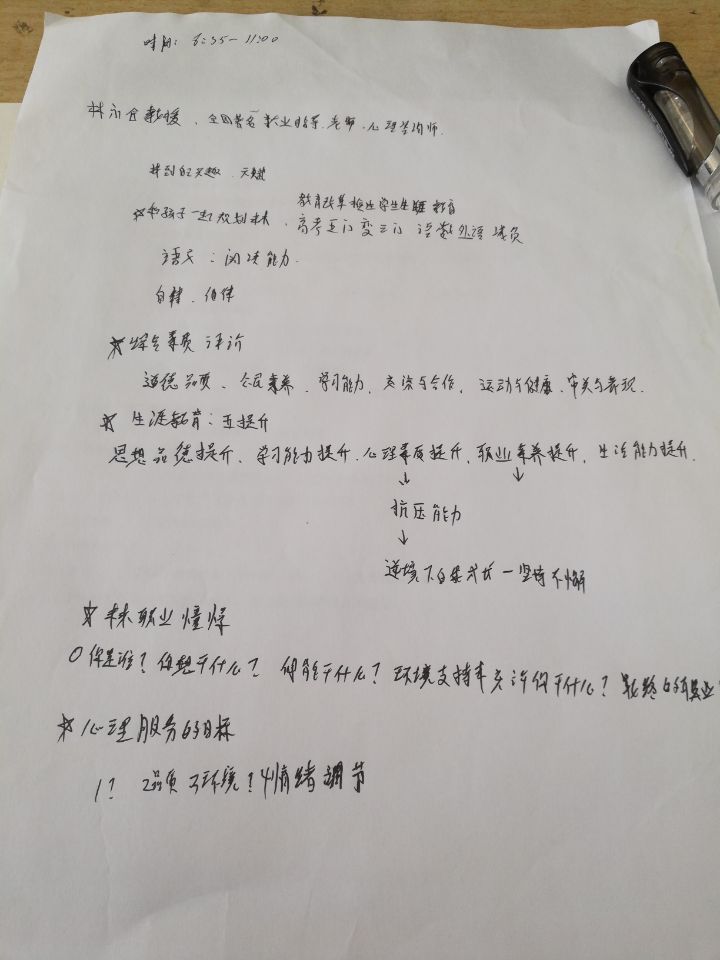 时间: 8:35-11:00
全国著名就业指导老师、心理咨询师.
找到自己兴趣、天赋
教育改革 推进学生生涯教育
☆和孩子一起规划未来、高考 变 语数外语 减负
语文:阅读能力.
自律、他律
☆综合素质评价
道德品质、公民素养、学习能力、交流与合作、运动与健康、审美与表现.
☆ 生涯教育:五提升
思想品德提升、学习能力提升、心理素质提升、职业素养提升、生活能力提升.
↓ ↓
抗压能力
↓
逆境下自我成长-坚持不懈
☆未来职业憧憬
○你是谁?你想干什么?你能干什么?环境支持或允许你干什么?最终的职业
☆心理服务的目标
1? 2品质 3环境? 4情绪调节